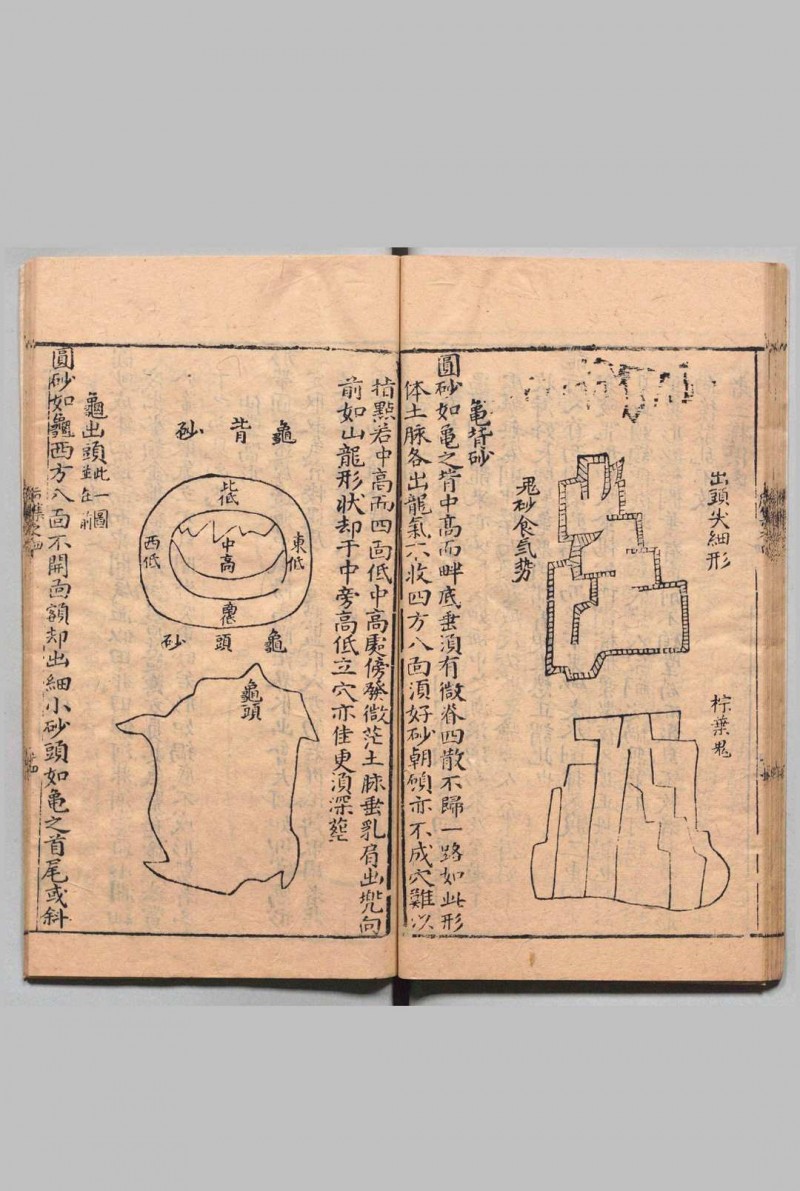 出頭尖細形
棕葉鬼
鬼砂食氣势
亀背砂
圓砂如亀之背中高而畔底垂須有微脊四散不歸一路如此形
体土脉各出龍氣不收四方八面須好砂朝顧亦不成穴難以
指點若中高而四面低中高處傍發微茫土脉垂乳肩出兠向
前如山龍形状却于中旁高低立穴亦佳更須深塟
龜背砂
北低
東低
中高
西低
龜頭砂
龜頭
龜出頭此一圖並在前
圓砂如龜西方八面不開面額却出細小砂頭如亀之首尾或斜